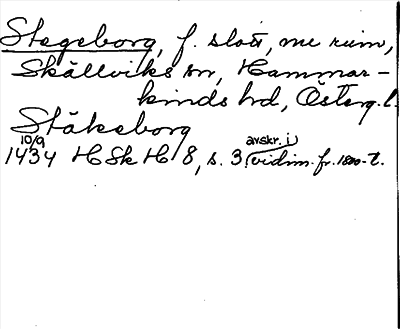 Stegeborg, f. slott, nu ruin,
Skällviks sn, Hammar-
kinds hd, Österg.l.
Stäkeborg
10/9 avskr. i
1434 HSkH 8, s. 3 (vidim. fr. 1800-t.